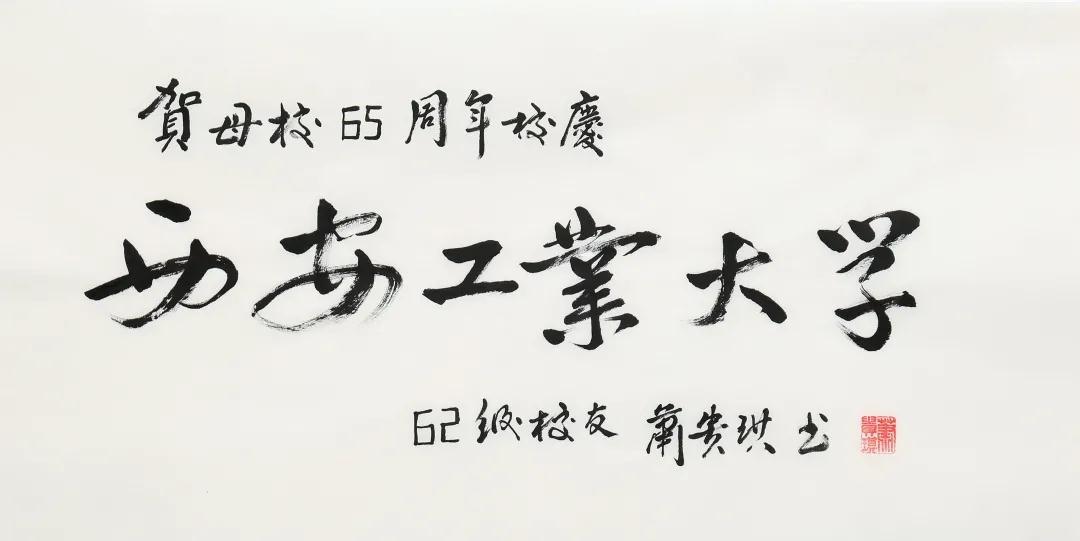 賀母校65周年校慶
西安工業大学
62级校友 蕭贵琪 书